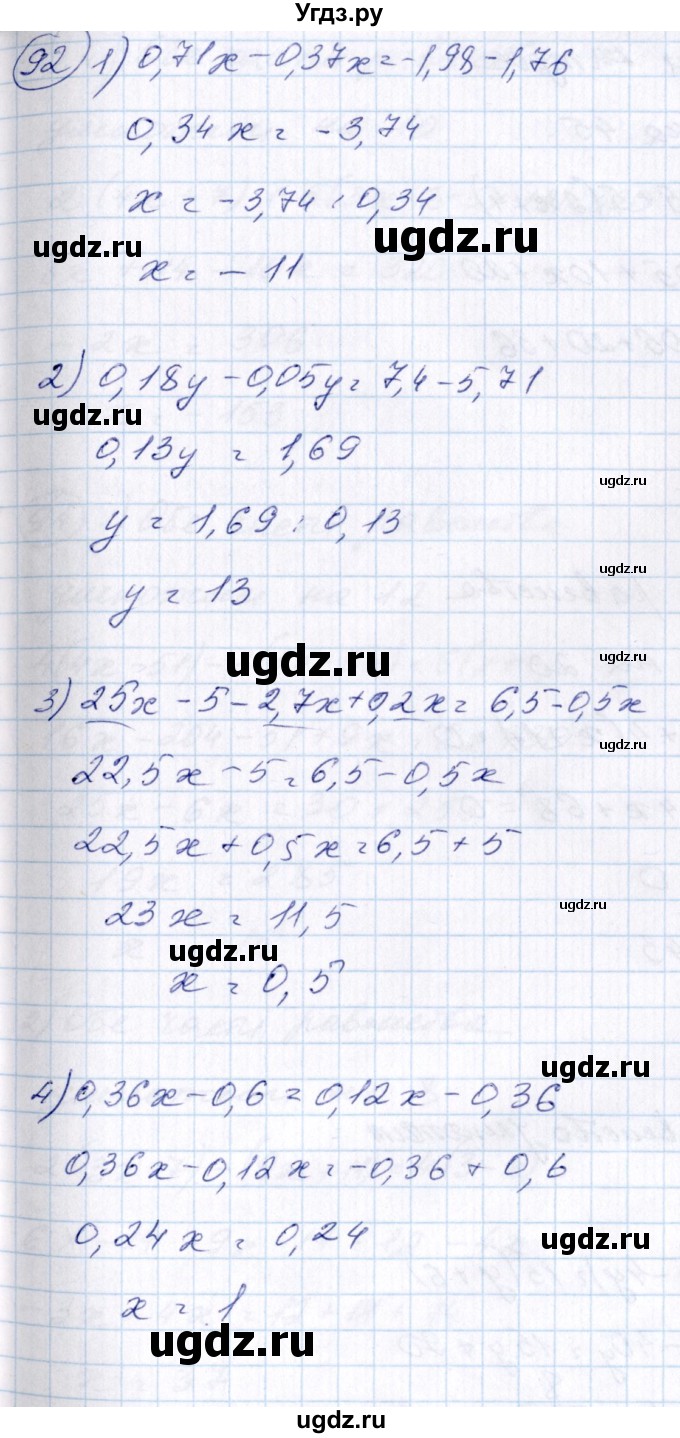 Угдз.ру
92 1) 0,71x - 0,37x = -1,98 - 1,76
0,34x = -3,74
x = -3,74 : 0,34
ugdz.ru
ugdz.ru
x = -11
2) 0,18y - 0,05y = 7,4 - 5,71
ugdz.ru
0,13y = 1,69
ugdz.ru
y = 1,69 : 0,13
ugdz.ru
y = 13
ugdz.ru
ugdz.ru
3) 25x - 5 - 2,7x + 0,2x = 6,5 - 0,5x
ugdz.ru
22,5x - 5 = 6,5 - 0,5x
22,5x + 0,5x = 6,5 + 5
23x = 11,5
ugdz.ru
ugdz.ru
x = 0,5
ugdz.ru
4) 0,36x - 0,6 = 0,12x - 0,36
0,36x - 0,12x = -0,36 + 0,6
0,24x = 0,24
ugdz.ru
x = 1
ugdz.ru
ugdz.ru